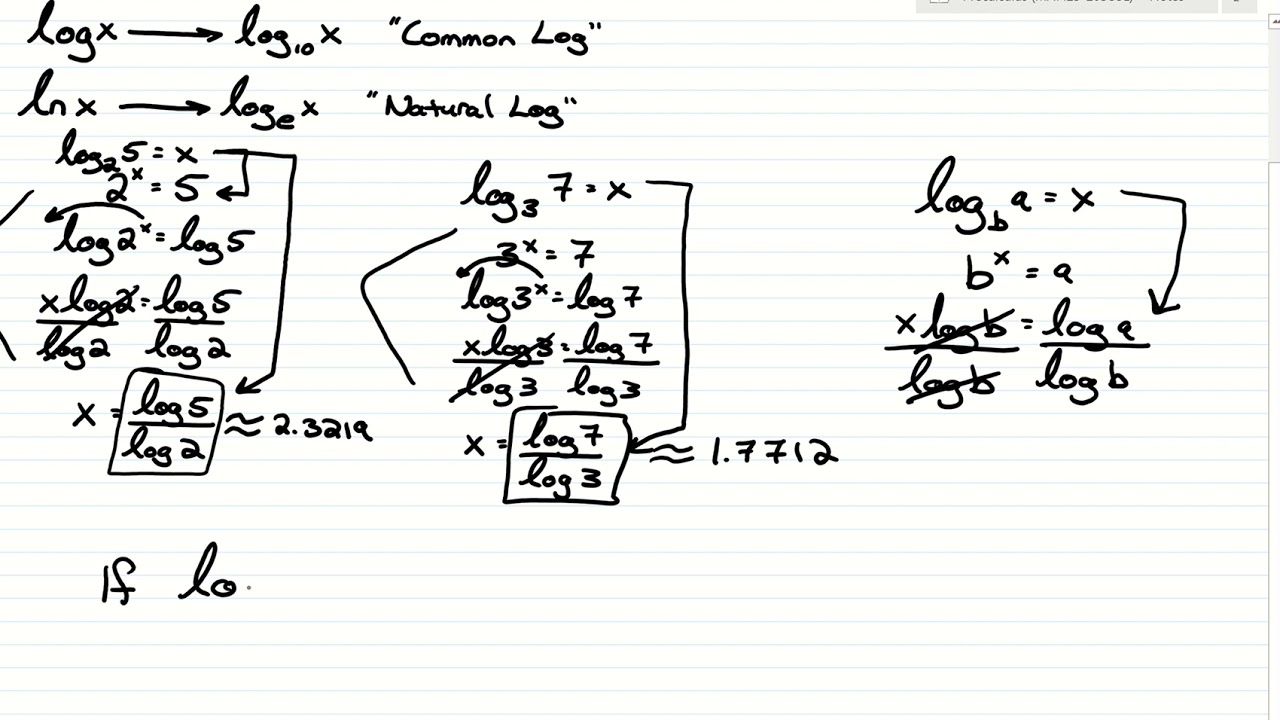 log x ⟶ log₁₀ x "Common Log"
ln x ⟶ logₑ x "Natural Log"
log₂ 5 = x
2ˣ = 5
log 2ˣ = log 5
x log 2 = log 5
log 2 log 2
x = log 5 / log 2 ≈ 2.3219
log₃ 7 = x
3ˣ = 7
log 3ˣ = log 7
x log 3 = log 7
log 3 log 3
x = log 7 / log 3 ≈ 1.7712
log_b a = x
bˣ = a
x log b = log a
log b log b
If lo